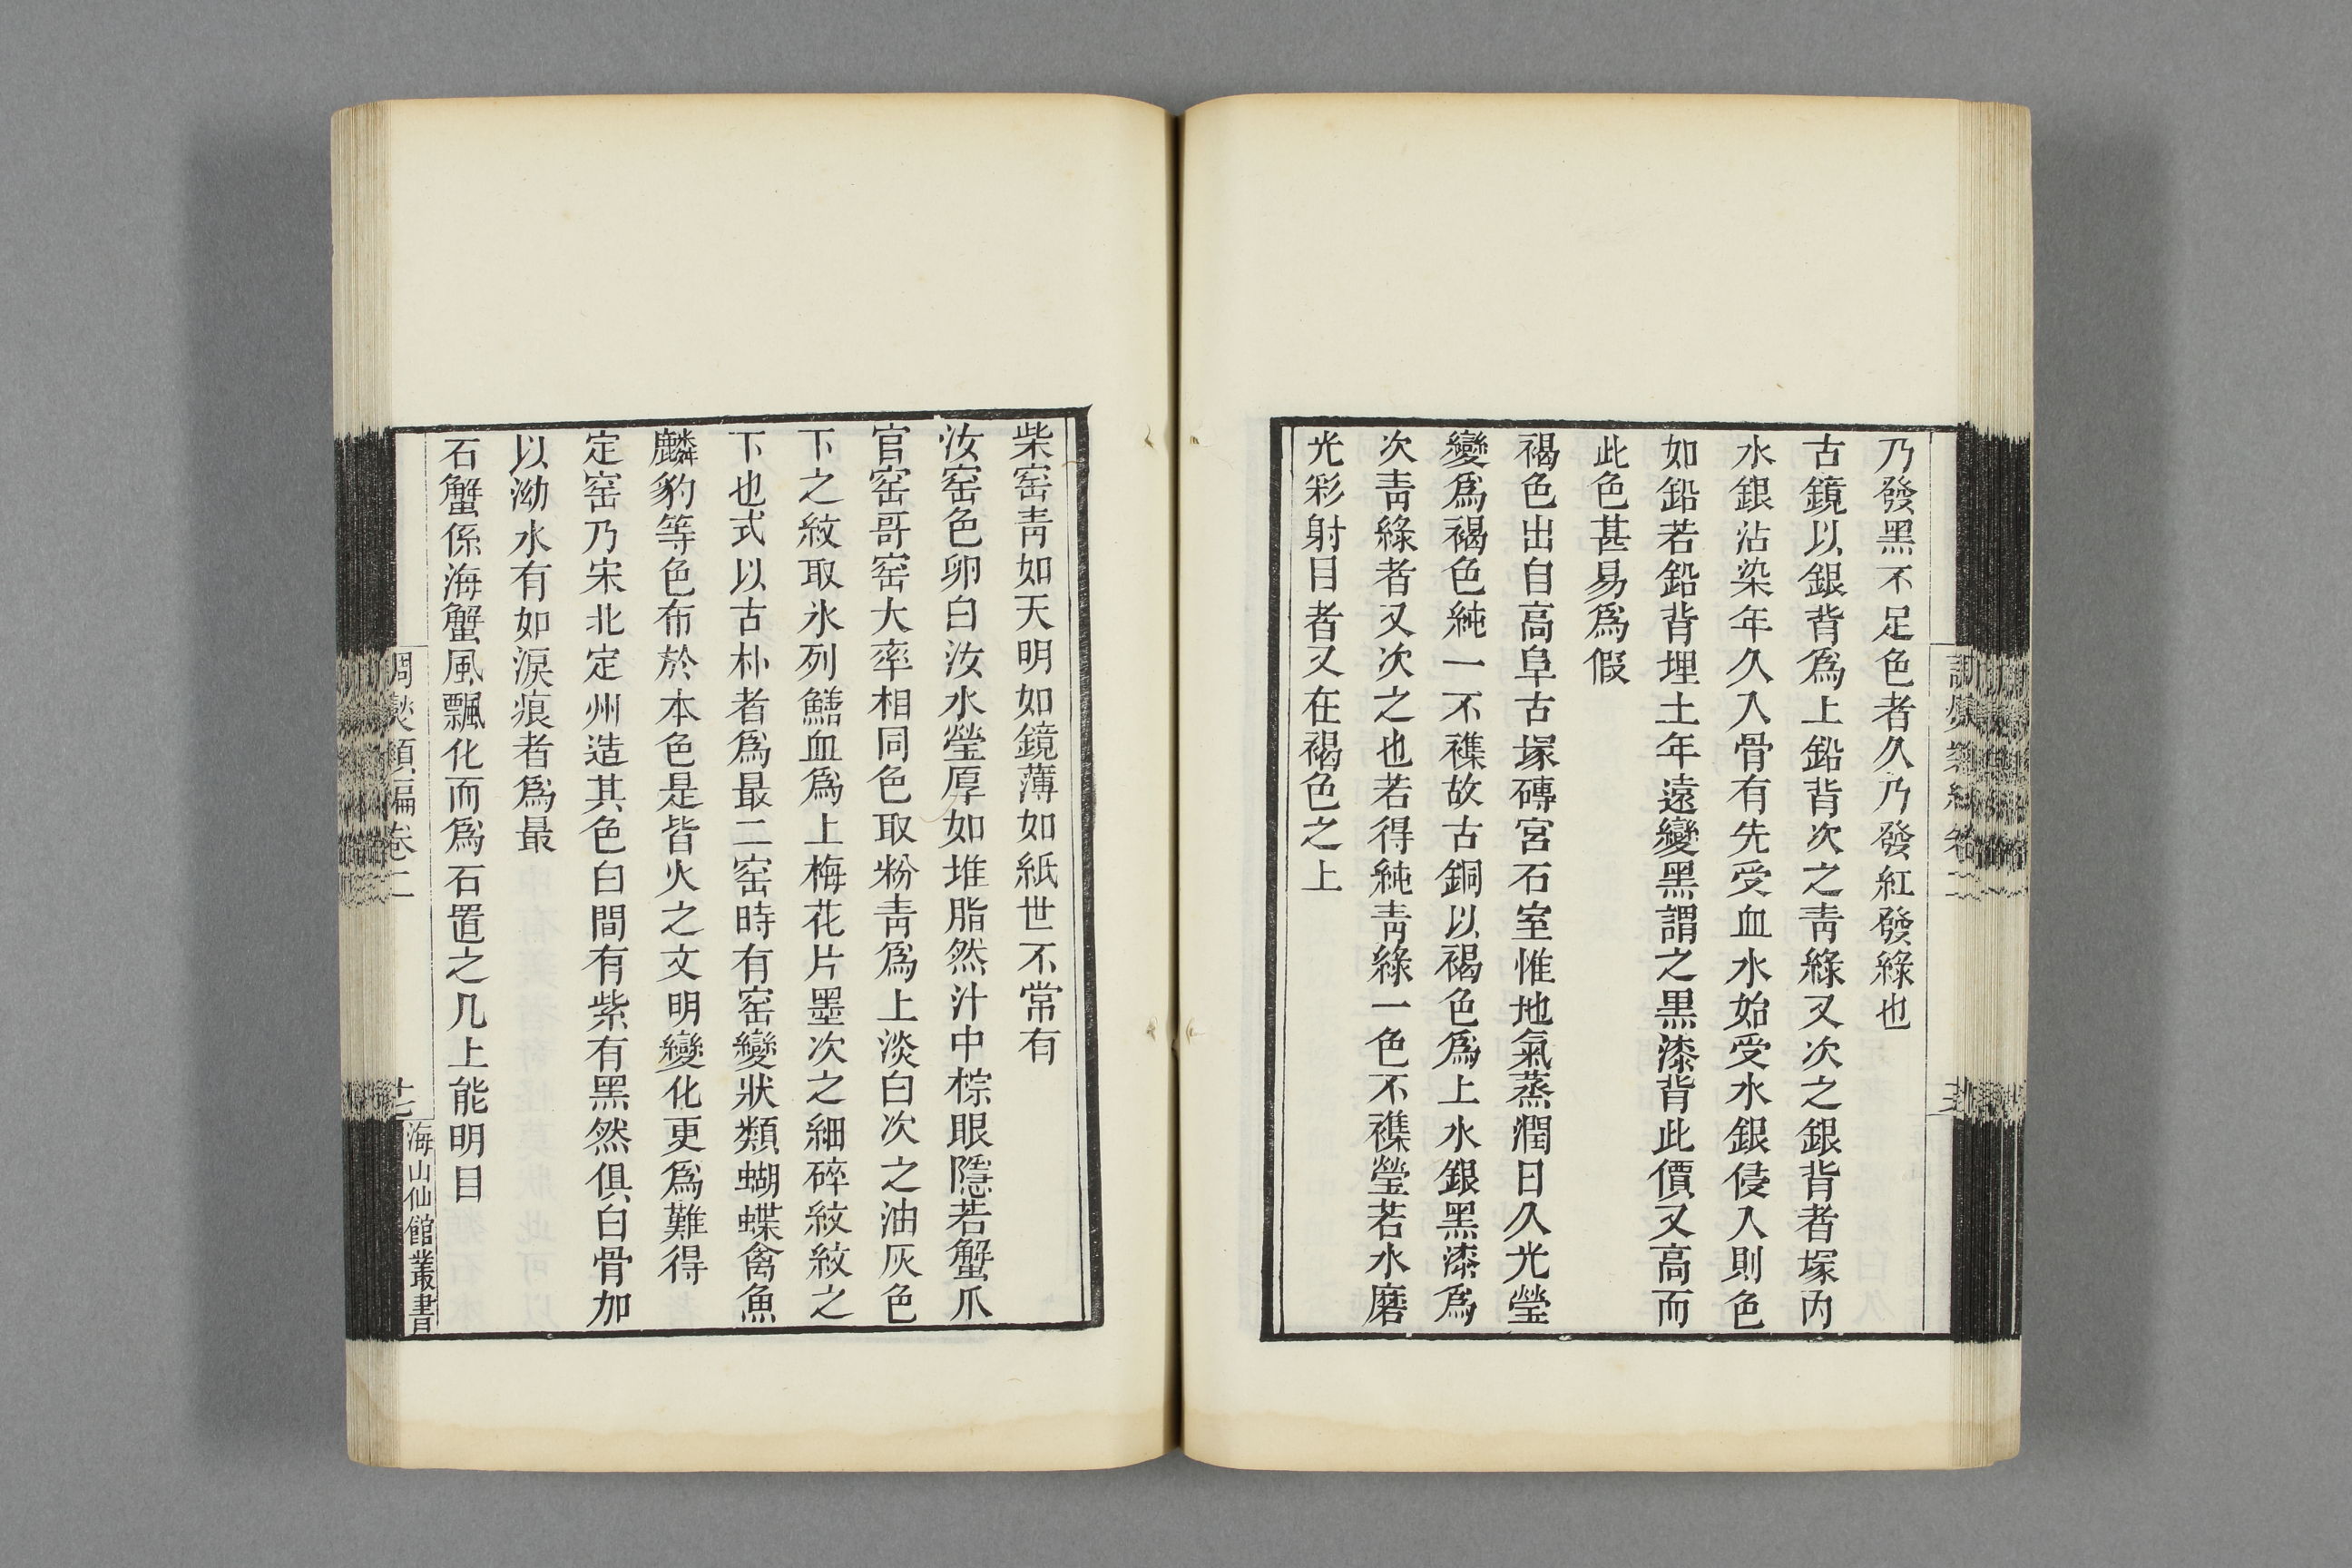 乃發黑不足色者久乃發紅發綠也
古鏡以銀背爲上鉛背次之靑綠又次之銀背者塚內
水銀沾染年久入骨有先受血水始受水銀侵入則色
如鉛若鉛背埋土年遠變黑謂之黑漆背此價又高而
此色甚易爲假
褐色出自高阜古塚磚宮石室惟地氣蒸潤日久光瑩
變爲褐色純一不襍故古銅以褐色爲上水銀黑漆爲
次靑綠者又次之也若得純靑綠一色不襍瑩若水磨
光彩射目者又在褐色之上
柴窑靑如天明如鏡薄如紙世不常有
汝窑色卵白汝水瑩厚如堆脂然汁中棕眼隱若蟹爪
官窑哥窑大率相同色取粉靑爲上淡白次之油灰色
下之紋取氷列鱔血爲上梅花片墨次之細碎紋紋之
下也式以古朴者爲最二窑時有窑變狀類蝴蝶禽魚
麟豹等色布於本色是皆火之文明變化更爲難得
定窑乃宋北定州造其色白間有紫有黑然俱白骨加
以泑水有如淚痕者爲最
石蟹係海蟹風飄化而爲石置之几上能明目
調爕類編卷二
七
海山仙館叢書